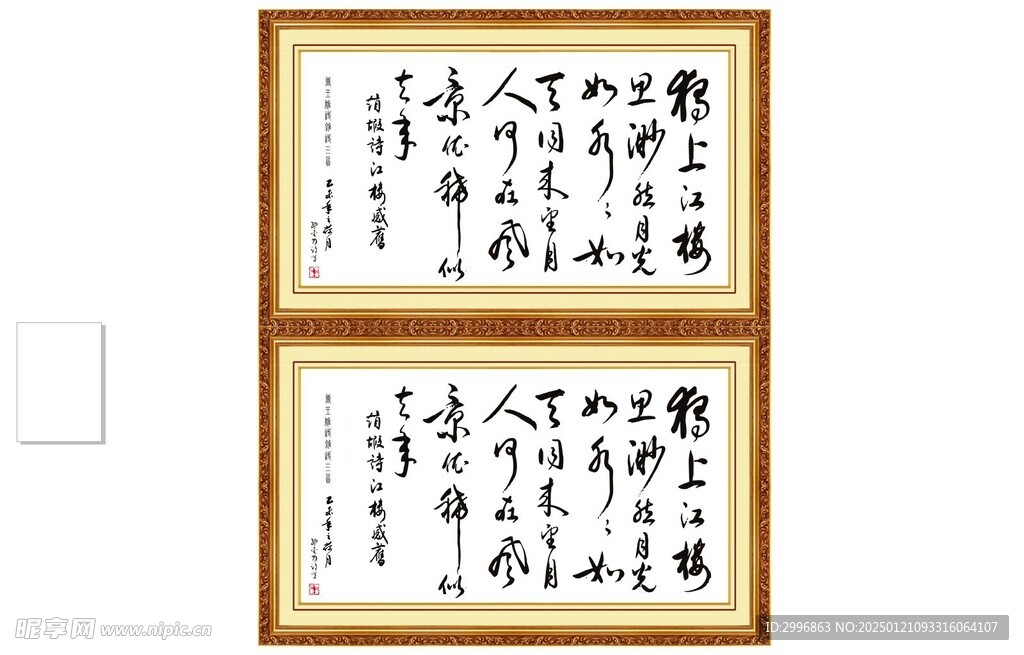 獨上江樓
思渺然月光
如水々如
天同来望月
人何在風
景依稀似
去年
嘏詩江樓感舊
獨上江樓
思渺然月光
如水々如
天同来望月
人何在風
景依稀似
去年
嘏詩江樓感舊
昵享网 www.nipic.cn
ID:2996863 NO:20250121093316064107